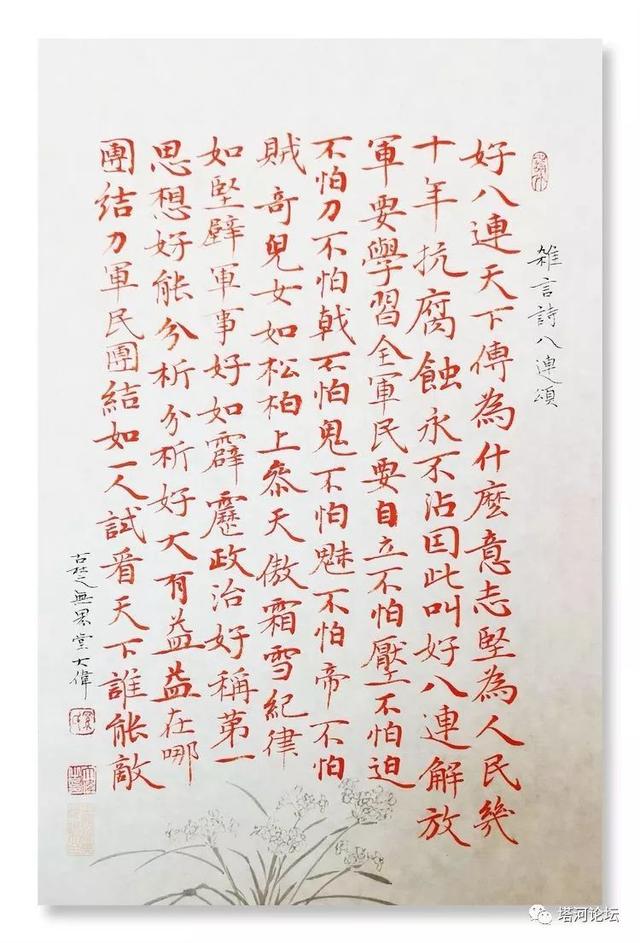 雜言詩八連頌
好八連天下傳為什麼意志堅為人民幾
十年抗腐蝕永不沾因此叫好八連解放
軍要學習全軍民要自立不怕壓不怕迫
不怕刀不怕戟不怕鬼不怕魅不怕帝不怕
賊奇兒女如松柏上參天傲霜雪紀律
如堅壁軍事好如霹靂政治好稱第一
思想好能分析分析好大有益益在哪
團結力軍民團結如一人試看天下誰能敵
堂大偉
塔河论坛